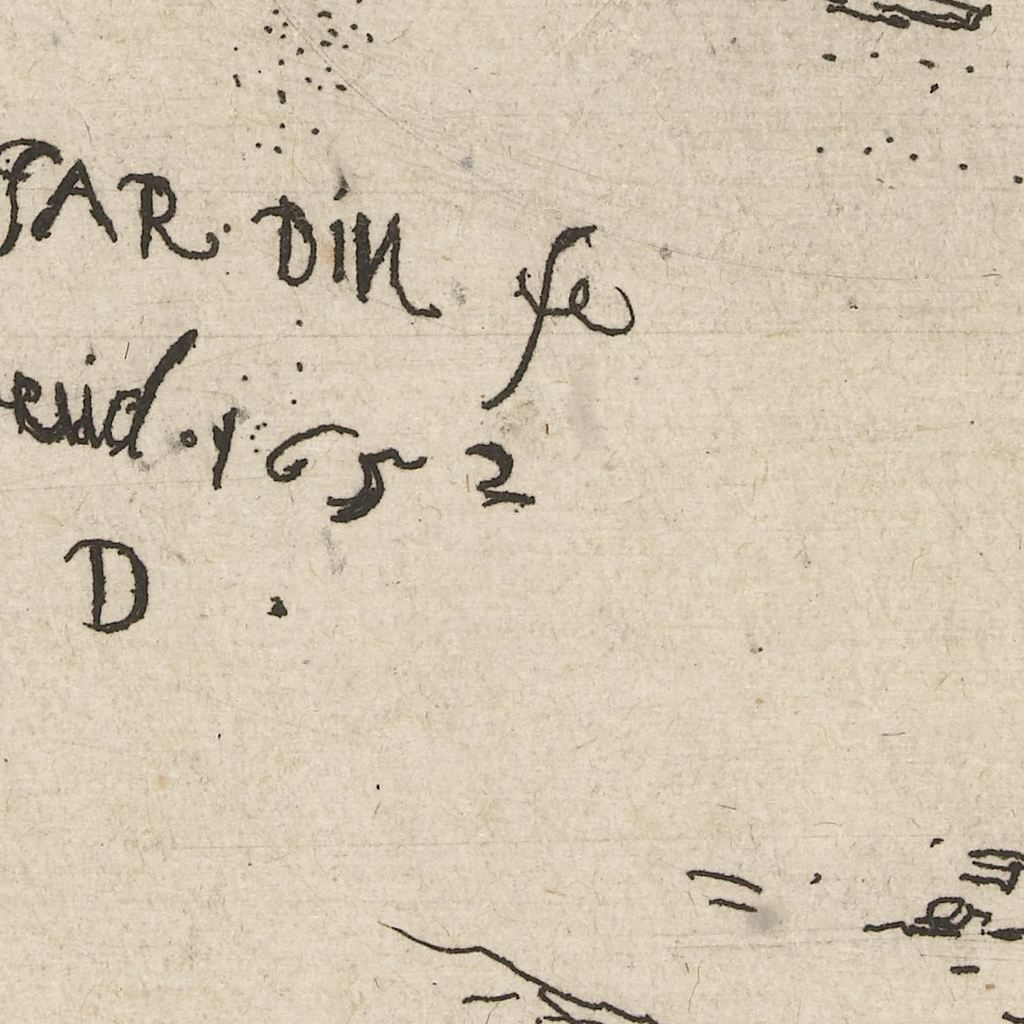 JARDIN fe
exud. 1652
D .